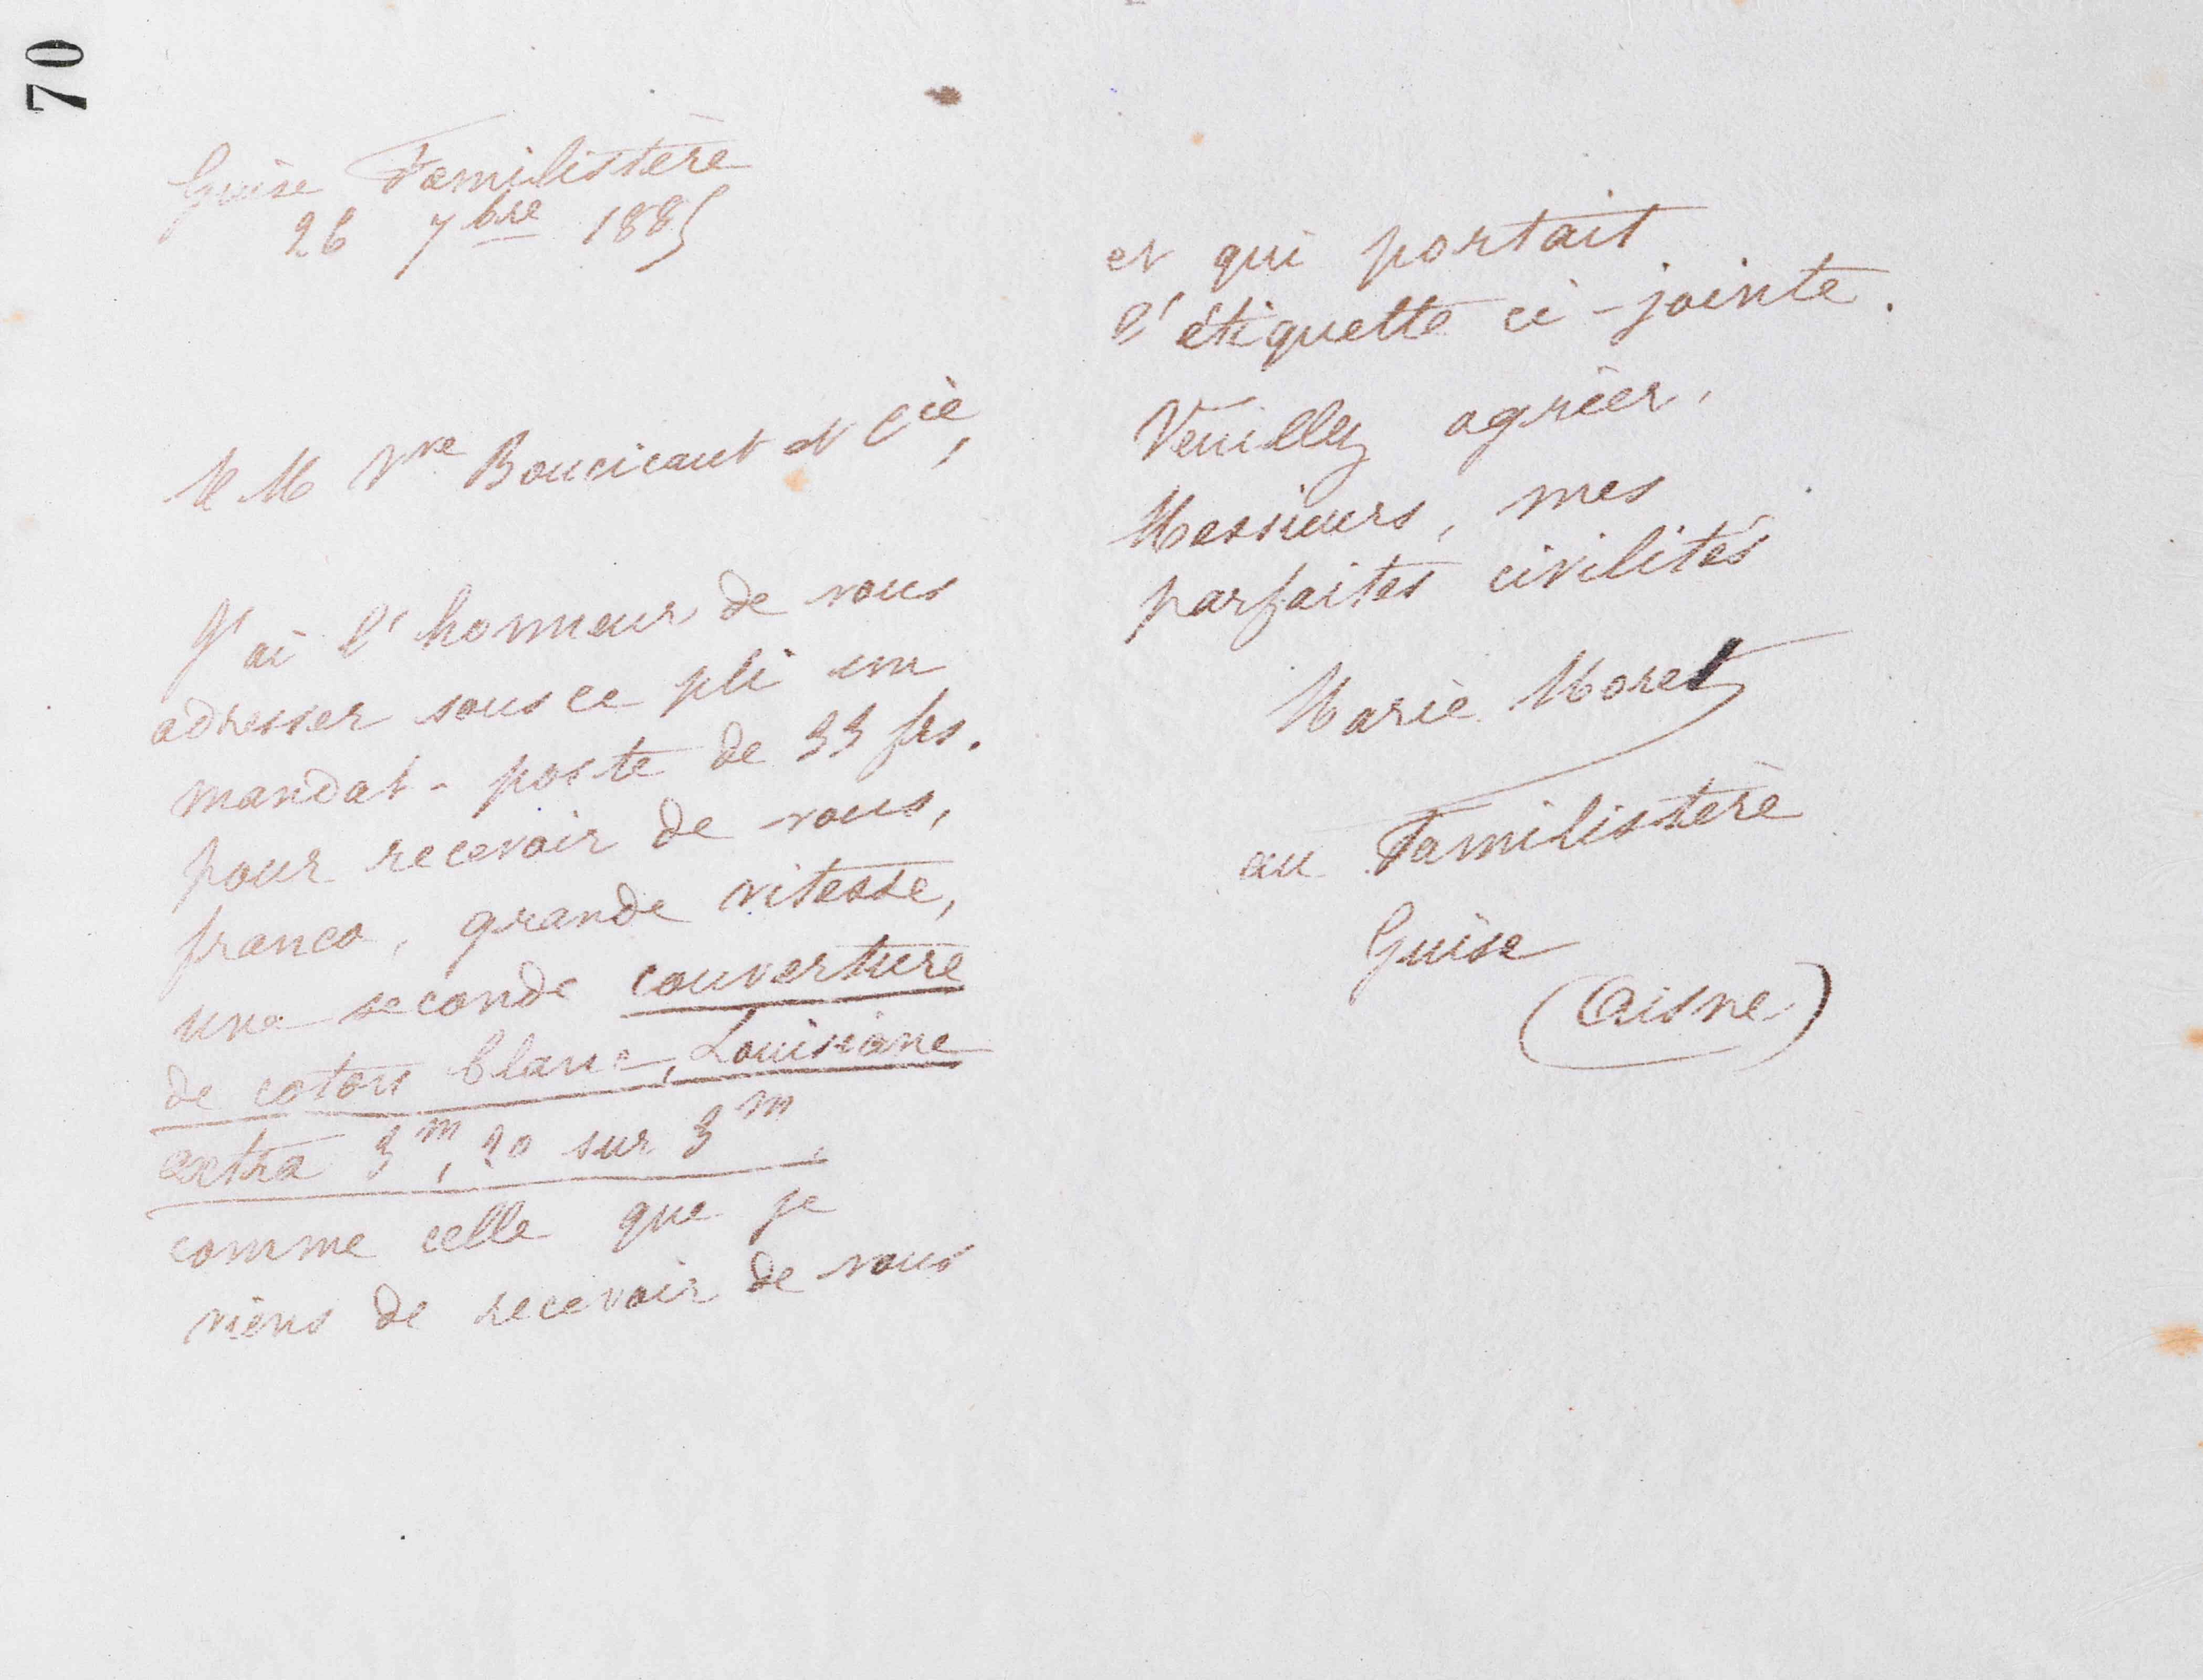 70
Guise Familistère
26 7bre 1885
MM Vve Boucicaut et Cie,
J'ai l'honneur de vous
adresser sous ce pli un
mandat-poste de 33 frs.
pour recevoir de vous,
franco, grande vitesse,
une seconde couverture
de coton blanc, Louisiane
extra 3m,20 sur 3m,
comme celle que je
viens de recevoir de vous
et qui portait
l'étiquette ci-jointe.
Veuillez agréer,
Messieurs, mes
parfaites civilités
Marie Moret
au Familistère
Guise
(Aisne)